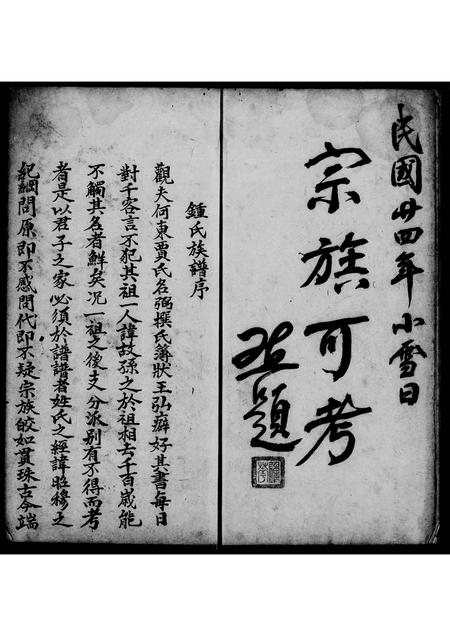 民國廿四年小雪日
宗族可考
題
鍾氏族譜序
觀夫何東賈氏名弼撰氏簿狀王弘癖好其書每日
對千客言不犯其祖一人諱故孫之於祖相去千百歲能
不觸其名者鮮矣况一祖之後支分派別有不得而考
者是以君子之家必須於譜譜者姓氏之經諱昭穆之
紀綱問原即不感問代即不疑宗族皎如貫珠古今端